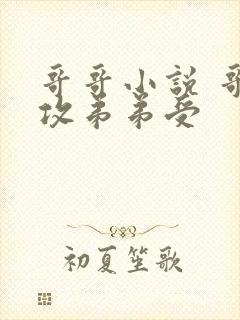 哥哥小说 哥
攻弟弟受
初夏笙歌